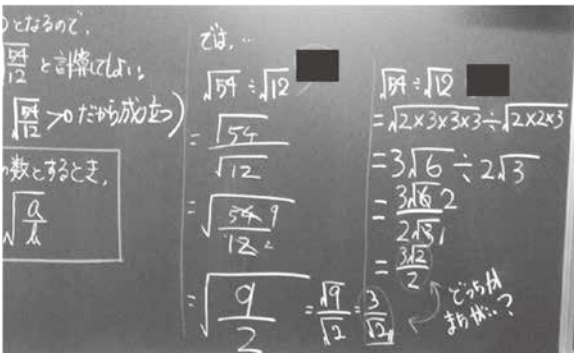 となるので、
54/12 と計算してよい。
√(54/12) > 0 だから成り立つ)
数とするとき、
√(a/b)
では、…
√54 ÷ √12
= √54/√12
= √(54/12) 9 2
= √(9/2) = √9/√2 = 3/√2
√54 ÷ √12
= √(2×3×3×3) ÷ √(2×2×3)
= 3√6 ÷ 2√3
= 3√6/2√3 2 1
= 3√2/2
どっちが
まちがい…?